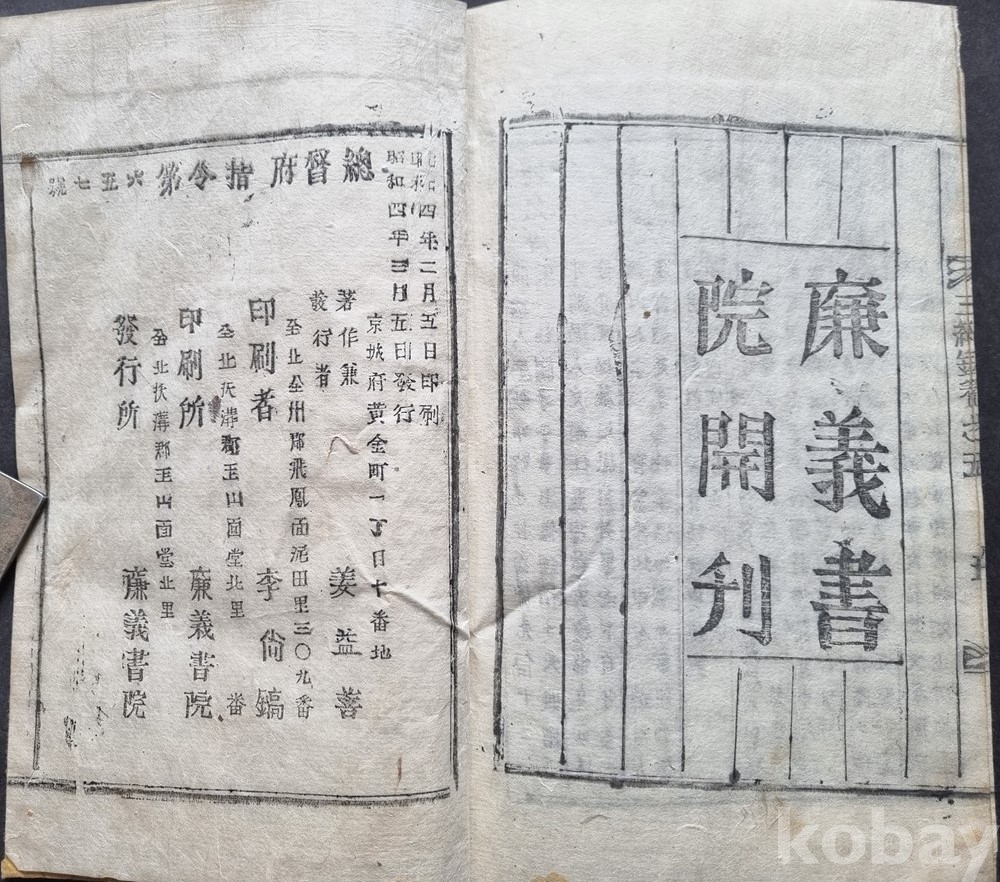 三綱錄卷之五
廉義書
院開刊
總督府指令第六五七號
昭和四年二月五日印刷
昭和四年三月五日發行
京城府黃金町一丁目十番地
著作兼
發行者 姜益善
全北全州郡飛鳳面泥田里三〇九番
印刷者 李尙鎬
全北沃溝郡玉山面堂北里 番
印刷所 廉義書院
全北沃溝郡玉山面堂北里
發行所 廉義書院
kobay